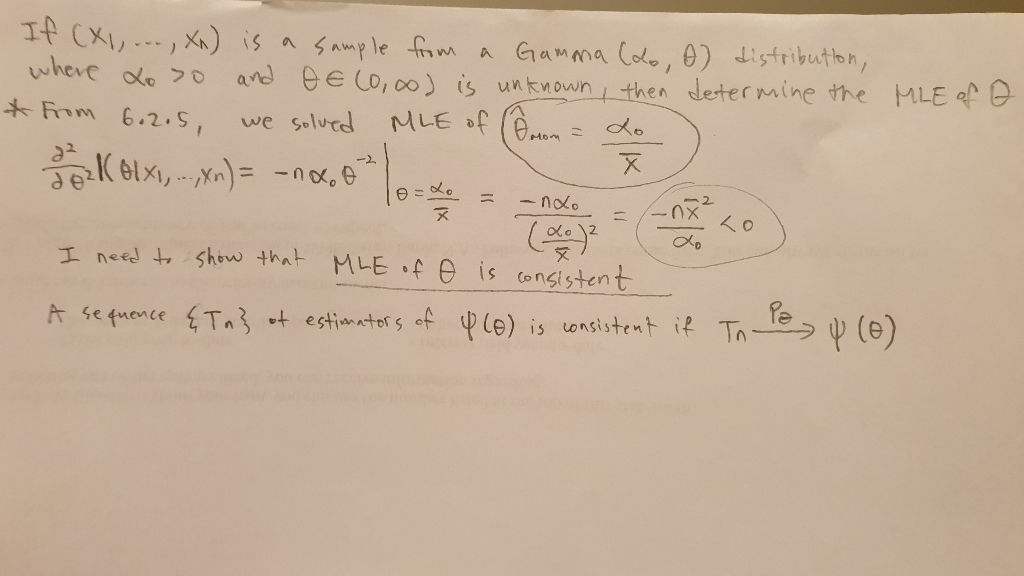 If (X1, ..., Xn) is a sample from a Gamma (α0, θ) distribution,
where α0 > 0 and θ ∈ (0, ∞) is unknown, then determine the MLE of θ
* From 6.2.5, we solved MLE of θ̂mom = α0 / x̄
∂²/∂θ² l(θ|x1, ..., xn) = -nα0θ⁻² |θ = α0/x̄ = -nα0 / (α0/x̄)² = -nx̄² / α0 < 0
I need to show that MLE of θ is consistent
A sequence {Tn} of estimators of ψ(θ) is consistent if Tn →Pθ ψ(θ)